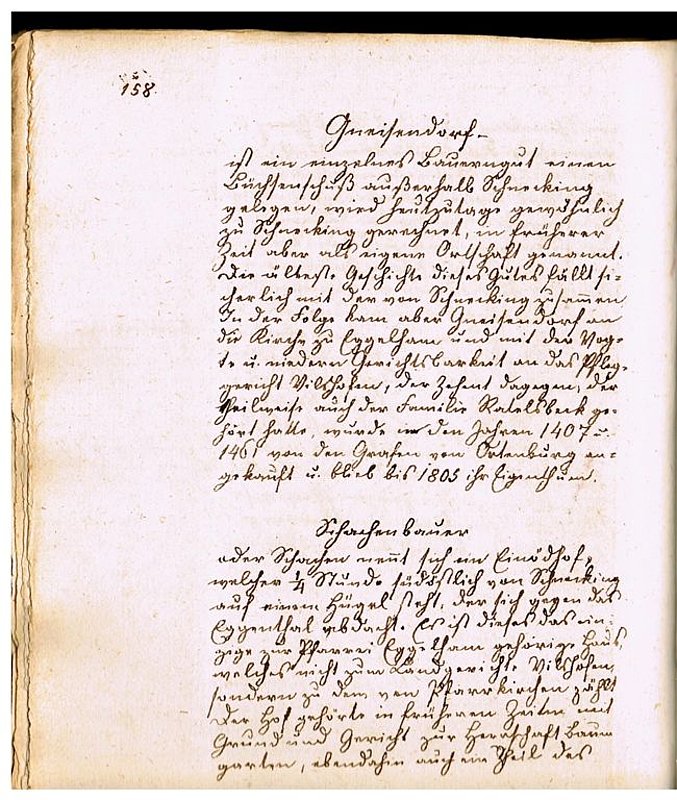 158.
Gneisendorf
ist ein einzelnes Bauerngut einen
Büchsenschuß außerhalb Schnecking
gelegen, wird heutzutage gewöhnlich
zu Schnecking gerechnet, in früherer
Zeit aber als eigene Ortschaft genannt.
Die älteste Geschichte dieses Gutes fällt si-
cherlich mit der von Schnecking zusammen
In der Folge kam aber Gneisendorf an
die Kirche zu Eggelham und mit der Vog-
te u. niedern Gerichtsbarkeit an das Pfleg-
gericht Vilshofen, der Zehent dagegen, der
theilweise auch der Familie Ratelsbeck ge-
hört hatte, wurde in den Jahren 1407 u.
1461 von den Grafen von Ortenburg an-
gekauft u. blieb bis 1805 ihr Eigenthum.
Schachenbauer
oder Schachen nennt sich ein Einödhof,
welcher 1/4 Stunde südöstlich von Schnecking
auf einem Hügel steht, der sich gegen das
Eggenthal abdacht. Es ist dieses das ein-
zige zur Pfarrei Eggelham gehörige Haus,
welches nicht zum Landgerichte Vilshofen,
sondern zu dem von Pfarrkirchen zählt
Der Hof gehörte in früheren Zeiten mit
Grund und Gericht zur Herrschaft Baum
garten, ebendahin auch ein Theil des